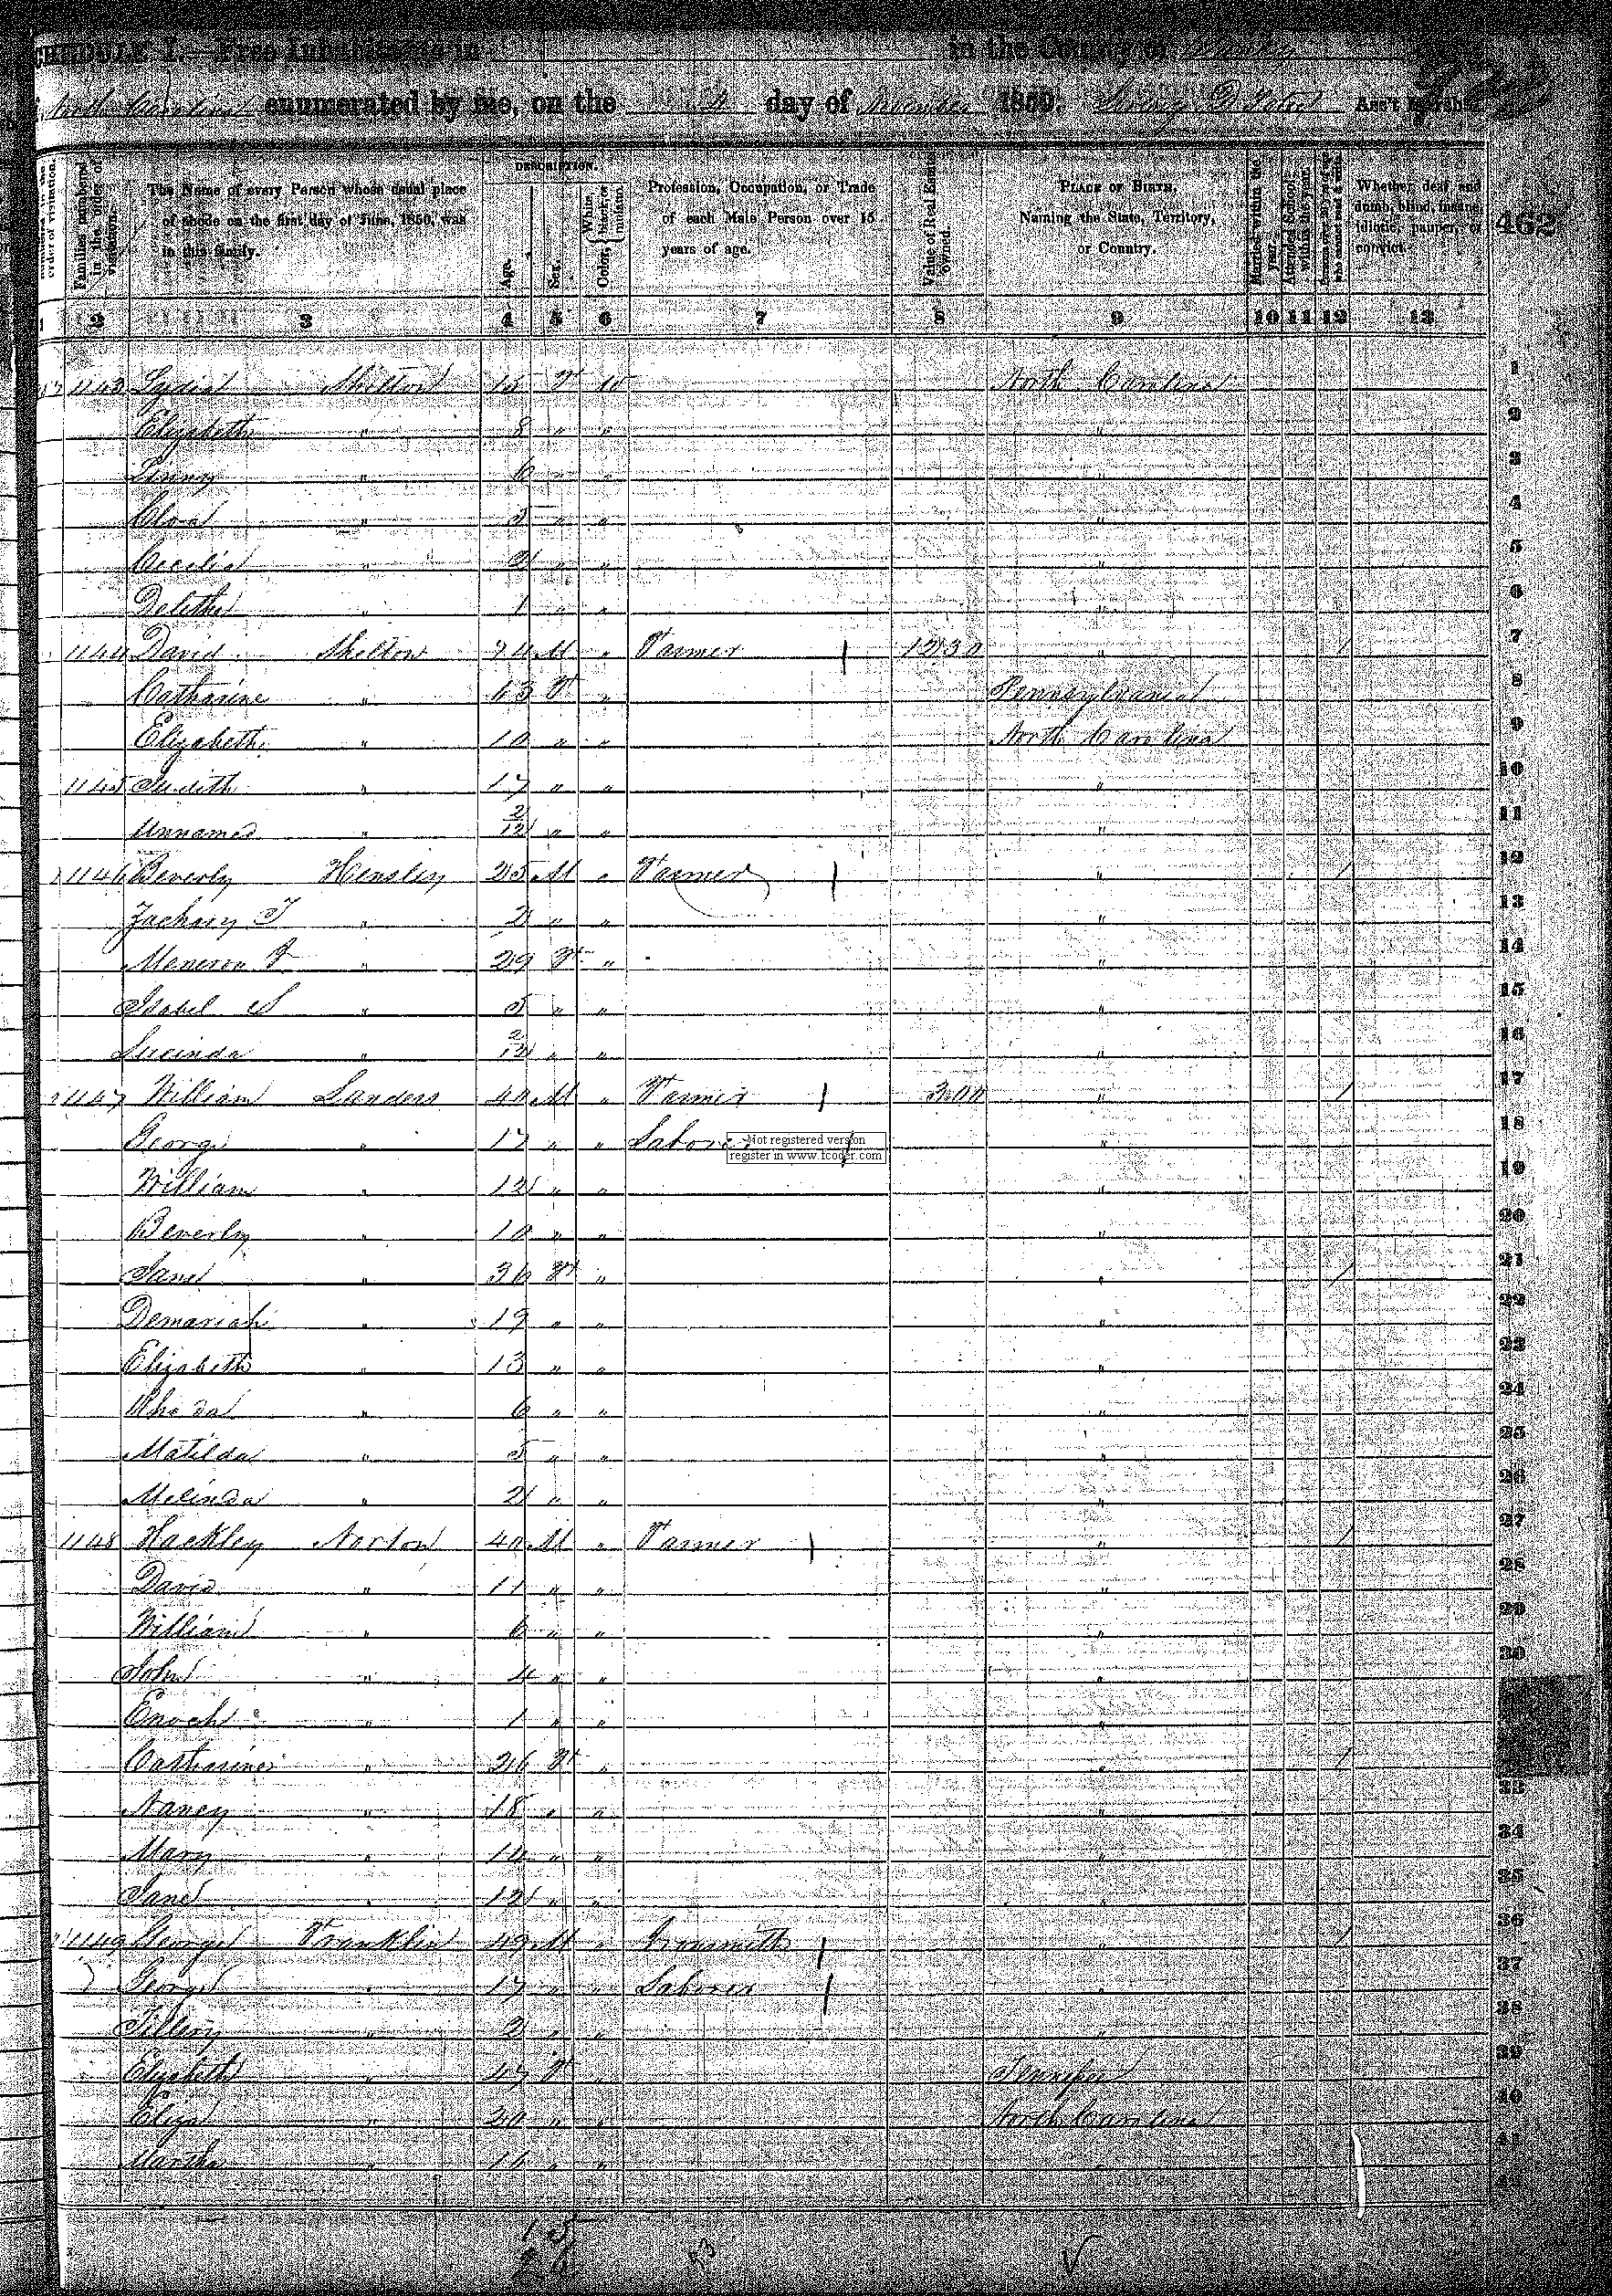 SCHEDULE I.—Free Inhabitants in in the County of
North Carolina enumerated by me, on the 4 day of November 1850. Ass't Marshal
Families numbered in the order of visitation.
The Name of every Person whose usual place of abode on the first day of June, 1850, was in this family.
DESCRIPTION.
Age.
Sex.
Color, { White, black, or mulatto.
Profession, Occupation, or Trade of each Male Person over 15 years of age.
Value of Real Estate owned.
PLACE OF BIRTH, Naming the State, Territory, or Country.
Married within the year.
Attended School within the year.
Persons over 20 y'rs of age who cannot read & write.
Whether deaf and dumb, blind, insane, idiotic, pauper, or convict.
462
1 2 3 4 5 6 7 8 9 10 11 12 13
1143 Lydia Shelton 15 F North Carolina 1
Elizabeth " 8 " " " 2
Linny " 6 " " " 3
Clora " 3 " " " 4
Cecilia " 2 " " " 5
Delitha " 1 " " " 6
1144 David Shelton 74 M " Farmer 1230 " / 7
Catharine " 63 F " Pennsylvania 8
Elizabeth " 10 " " North Carolina 9
1145 Judith " 17 " " " 10
Unnamed " 2/12 " " " 11
1146 Beverly Hensley 25 M " Farmer " / 12
Zachary T " 2 " " " 13
" 29 F " " 14
Isabel S " 5 " " " 15
Lucinda " 2/12 " " " 16
1147 William Landers 40 M " Farmer 300 " / 17
George " 17 " " Laborer " 18
Not registered version
register in www.fcoder.com
William " 12 " " " 19
Beverly " 10 " " " 20
Jane " 36 F " " / 21
Demariah " 19 " " " 22
Elizabeth " 13 " " " 23
Rhoda " 6 " " " 24
Matilda " 5 " " " 25
Melinda " 2 " " " 26
1148 Hackley Norton 40 M " Farmer " / 27
David " 11 " " " 28
William " 6 " " " 29
John " 4 " " " 30
Enoch " 1 " " "
Catharine " 36 F " " /
Nancy " 18 " " " 33
Mary " 14 " " " 34
Jane " 12 " " " 35
1149 George Franklin 49 M " " / 36
George " 17 " " Laborer " 37
Tillery " 2 " " " 38
Elizabeth " 47 F " Tennessee 39
Eliza " 20 " " North Carolina 40
Martha " 16 " " "
15
26